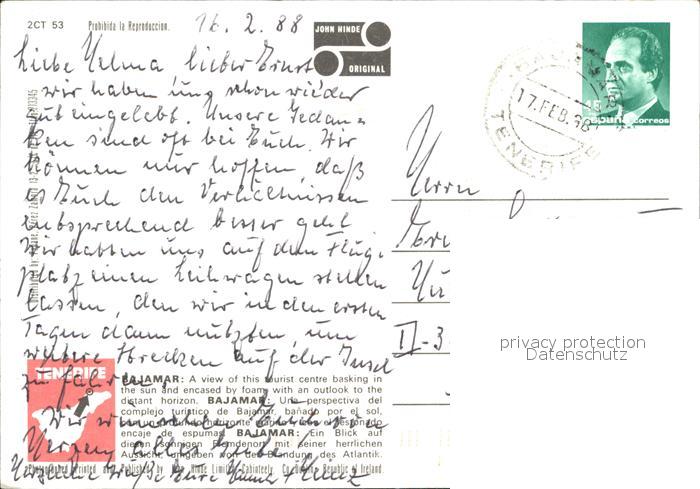 2CT 53
Prohibida la Reproduccion.
16.2.88
JOHN HINDE
ORIGINAL
Liebe Velma lieber Ernst
wir haben uns schon wieder
gut eingelebt. Unsere Gedan=
ken sind oft bei Euch. Wir
können nur hoffen, daß
es Euch den Verhältnissen
entsprechend besser geht
Wir hatten uns auf dem Flug=
platz einen Leihwagen stellen
lassen, den wir in den ersten
Tagen dann nützten, um
weitere Strecken auf der Insel
zu fahren.
Wir wünschen Euch von
Herzen alles Liebe
Herzliche Grüße Eure
+ Heinz
17.FEB.88
TENERIFE
45
España correos
Herrn
II-3
privacy protection
Datenschutz
TENERIFE
BAJAMAR: A view of this tourist centre basking in
the sun and encased by foam with an outlook to the
distant horizon. BAJAMAR: Una perspectiva del
complejo turístico de Bajamar, bañado por el sol,
encaje de espumas. BAJAMAR: Ein Blick auf
diesen sonnigen Fremdenort mit seiner herrlichen
Aussicht, umgeben von der Brandung des Atlantik.
Photographed Printed and Published by John Hinde Limited, Cabinteely, Co. Dublin, Republic of Ireland.